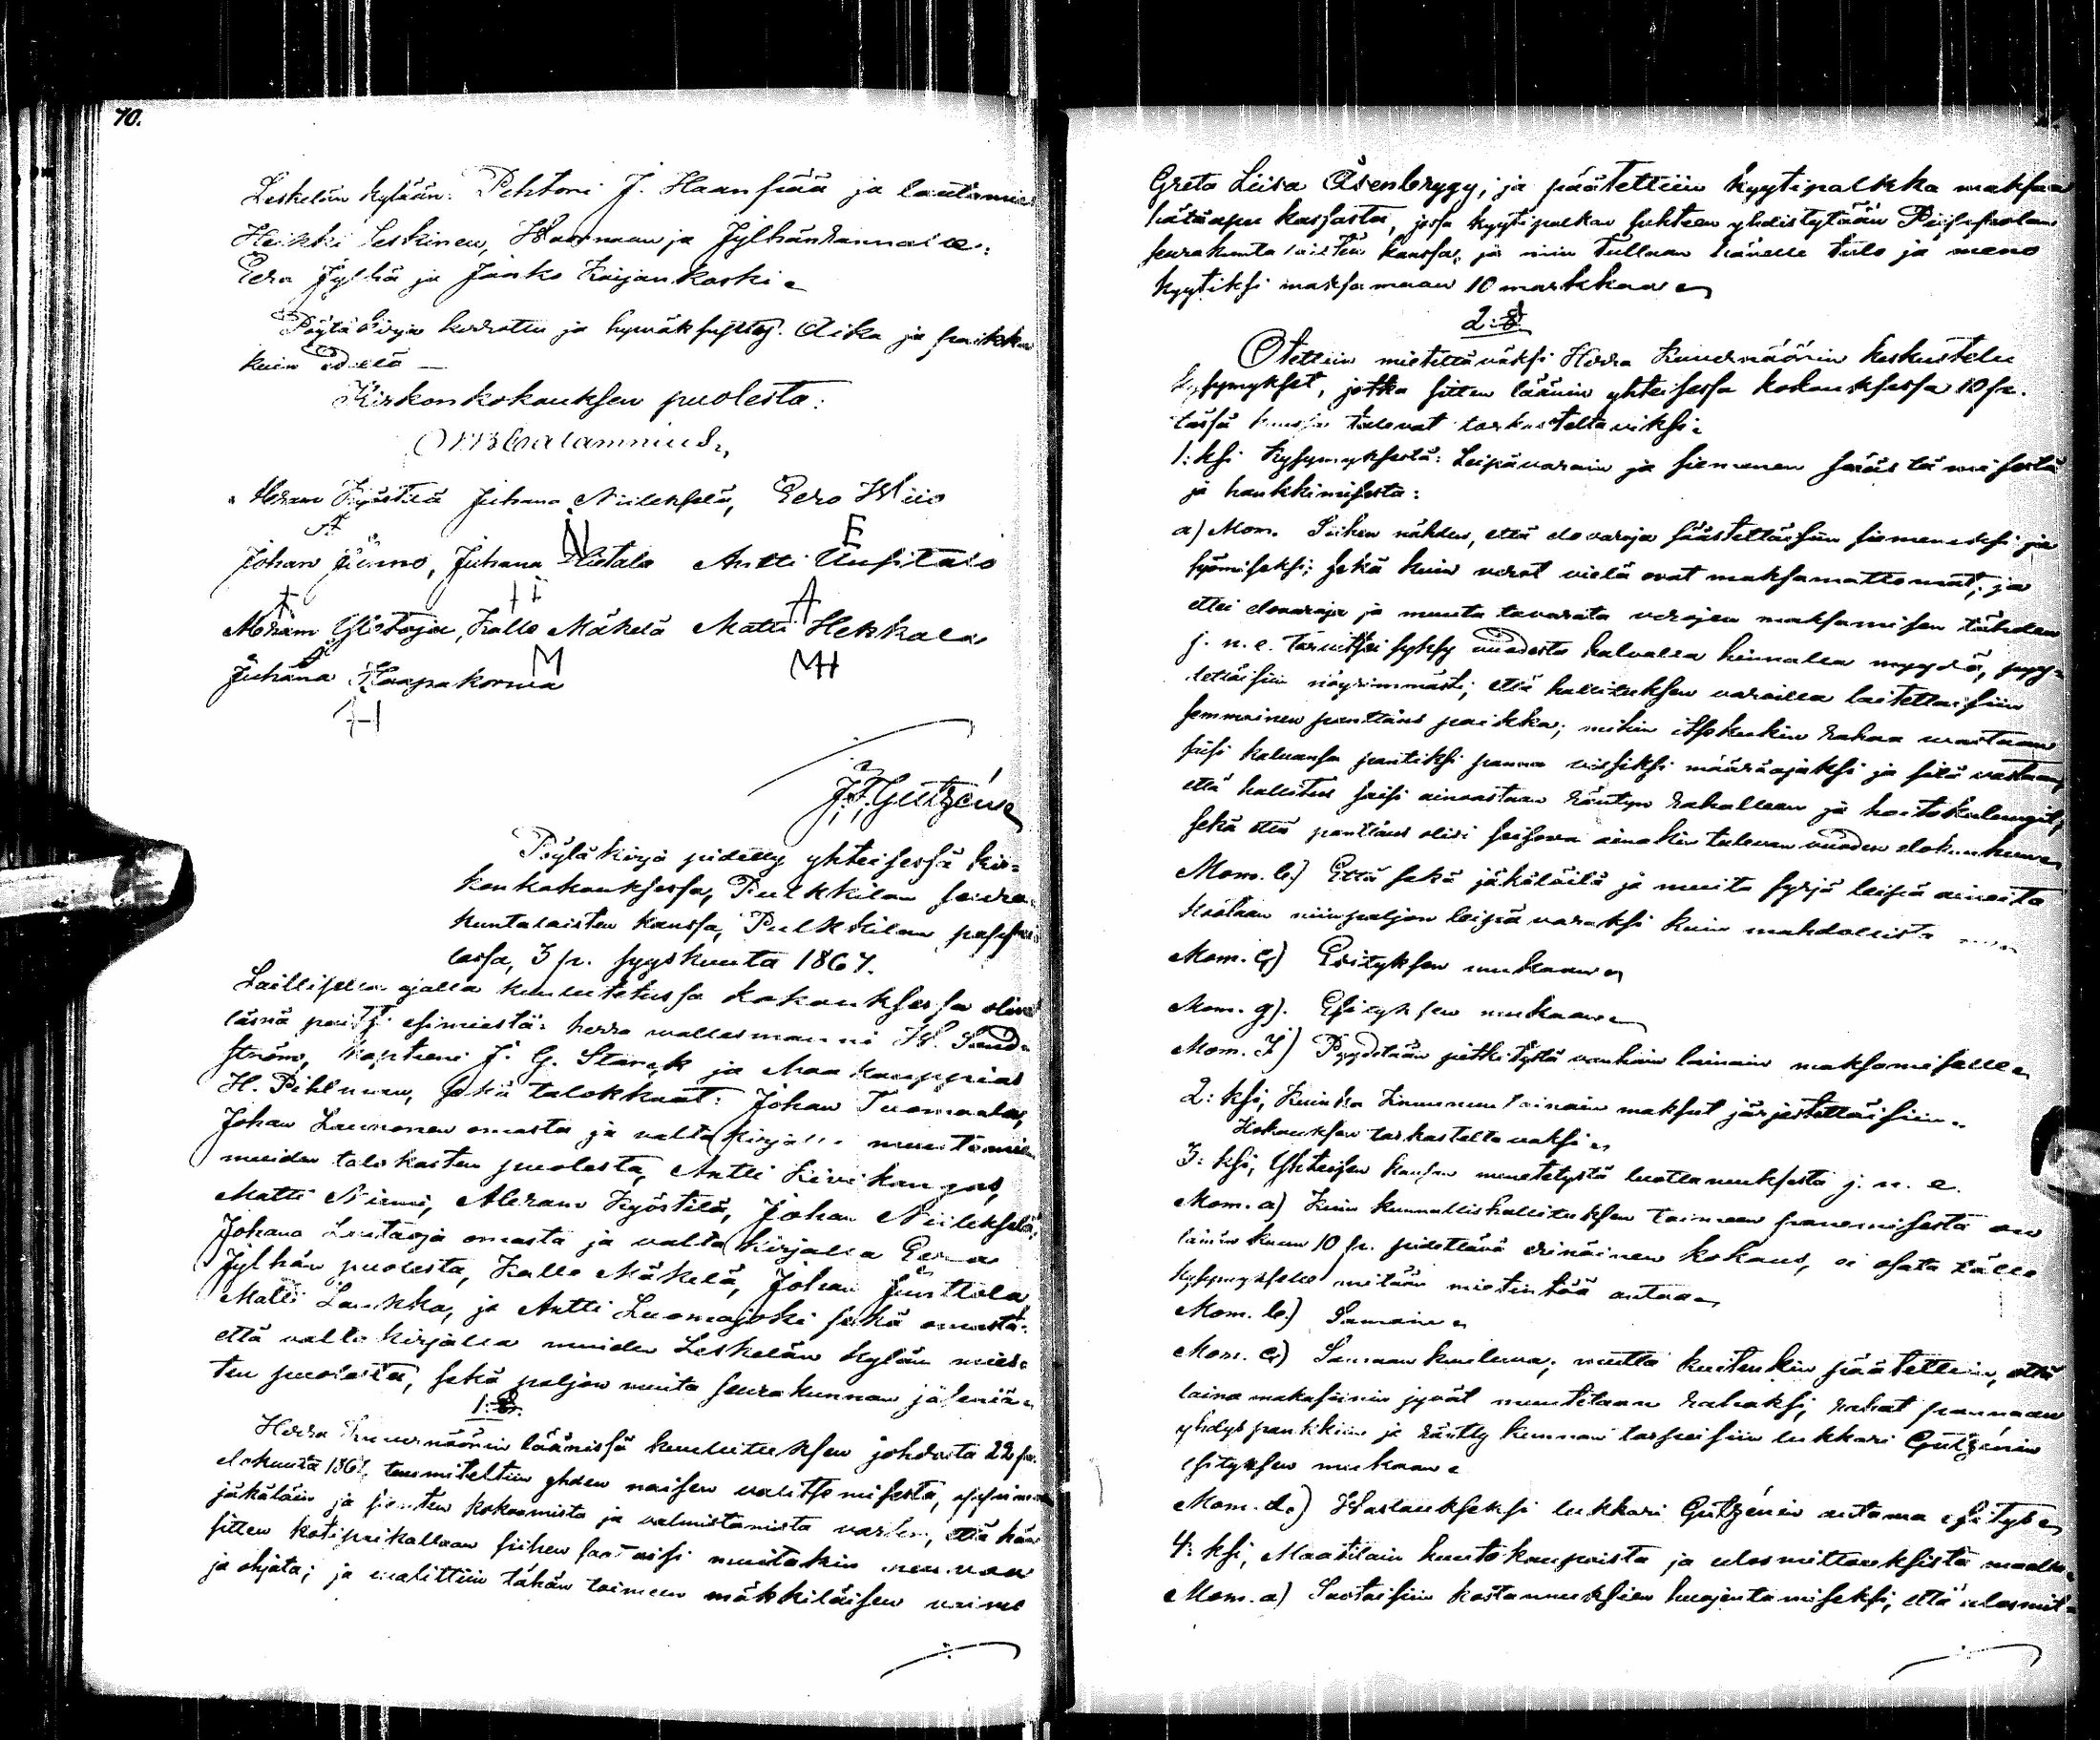 70.
Leskelän kylään: Pehtori J. Haanpää ja lautamies
Heikki Leskinen, Wuornan ja Jylhänrannalle:
Eero Jylhä ja Janko Korjankoski.
Pöytäkirja kerrottu ja hywäksytty. Aika ja paikka
kuin edellä —
Kirkonkokouksen puolesta:
Abram Kyöstilä Juhana Niilekselä, Eero Wiio
A N E
Johan Junno, Juhana Hietala Antti Uusitalo
J H A
Abram Ylötaja, Kalle Mäkelä Matti Hekkala
A M MH
Juhana Haapakorwa
H
J. F. Gutzén
Pöytäkirja pidetty yhteisessä kir-
konkokouksessa, Pulkkilan seura-
kuntalaisten kanssa, Pulkkilan pappi-
lassa, 3 p. syyskuuta 1867.
Laillisella ajalla kuulutetussa kokouksessa oliwat
läsnä paitsi esimiestä: herra wallesmanni W. Sand-
ström, kapteeni J. G. Starck ja Maakauppias
H. Pihlman, sekä talokkaat: Johan Tuomaala,
Johan Launonen omasta ja waltakirjalla muutamien
muiden talokasten puolesta, Antti Kiwikangas,
Matti Niemi, Abram Kyöstilä, Johan Niilekselä,
Johana Lautaoja omasta ja waltakirjalla Eero
Jylhän puolesta, Kalle Mäkelä, Johan Junttola
Matti Laukka, ja Antti Luomajoki sekä omasta
että waltakirjalla muiden Leskelän kylän mies-
ten puolesta, sekä paljon muita seurakunnan jäseniä.
1: §.
Herra Kuwernöörin läänissä kuulutuksen johdosta 22 p.
elokuuta 1867, tuumiteltiin yhden naisen walitsemisesta,
jäkäläin ja sienten kokoomista ja walmistamista warten, että hän
sitten kotipaikallaan siihen saattaisi muitakin neuwoa
ja ohjata; ja walittiin tähän toimeen mäkkiläisen waimo
Greta Liisa Åsenbrygg, ja päätettiin kyytipalkka maksaa
hätäapu kassasta, jossa kyytipalkan suhteen yhdistytään Piippolan
seurakuntalaisten kanssa, ja niin tullaan hänelle tulo ja meno
kyytiksi maksamaan 10 markkaa.
2: §
Otettiin mietittäwäksi Herra Kuwernöörin keskustelu
kysymykset, jotka sitten läänin yhteisessä kokouksessa 10 p.
tässä kuussa tulewat tarkasteltawiksi.
1: ksi Kysymyksestä: Leipäwarain ja siemenen säästämisestä
ja hankkimisesta:
a) Mom. Siihen nähden, että elowaroja säästettäisiin siemeneksi ja
syömiseksi; sekä kuin werot wielä owat maksamattomat; ja
ettei elowaroja ja muuta tawarata werojen maksamisen tähden
j. n. e. tarwitsisi syksy wuodesta halwalla hinnalla myydä, pyy-
dettäisiin nöyrimmästi, että hallituksen waroilla laitettaisiin
semmoinen panttaus paikka; mihin itsekukin rahaa wastaan
saisi kaluansa pantiksi panna wissiksi määräajaksi ja sitä wastaan,
että hallitus saisi ainoastaan räntyn rahallean ja hoitokulungit,
sekä että panttaus olisi seisowa ainakin tulewan wuoden elokuuhun.
Mom. b.) Että sekä jäkälöitä ja muita syrjä leipä aineita
kootaan niinpaljon leipäwaraksi kuin mahdollista
Mom. c) Esityksen mukaan.
Mom. g). Esityksen mukaan.
Mom. J) Pyydetään pitkitystä wanhain lainain maksamiselle.
2: ksi, Kuinka Kruunun lainain maksut järjestettäisiin.
Kokouksen tarkasteltawaksi.
3: ksi, Yhteisen kansan menetetystä luottamuksesta j. n. e.
Mom. a) Kuin kunnallishallituksen toimeen panemisesta on
tämän kuun 10 p. pidettäwä erinäinen kokous, ei osata tälle
kysymykselle mitään mietintöä antaa.
Mom. b.) Samoin.
Mom. c) Samaan kuuluwa; mutta kuitenkin päätettiin, että
laina makasiinin jywät muutetaan rahaksi, rahat pannaan
yhdyspankkiin ja käytty kunnan tarpeisiin lukkari Gutzénin
esityksen mukaan.
Mom. d.) Wastaukseksi lukkari Gutzénin antama esitys.
4: ksi, Maatilain huutokaupoista ja ulosmittauksista maalla.
Mom. a) Suotaisiin kostannuksien huojentamiseksi, että ulosmit-